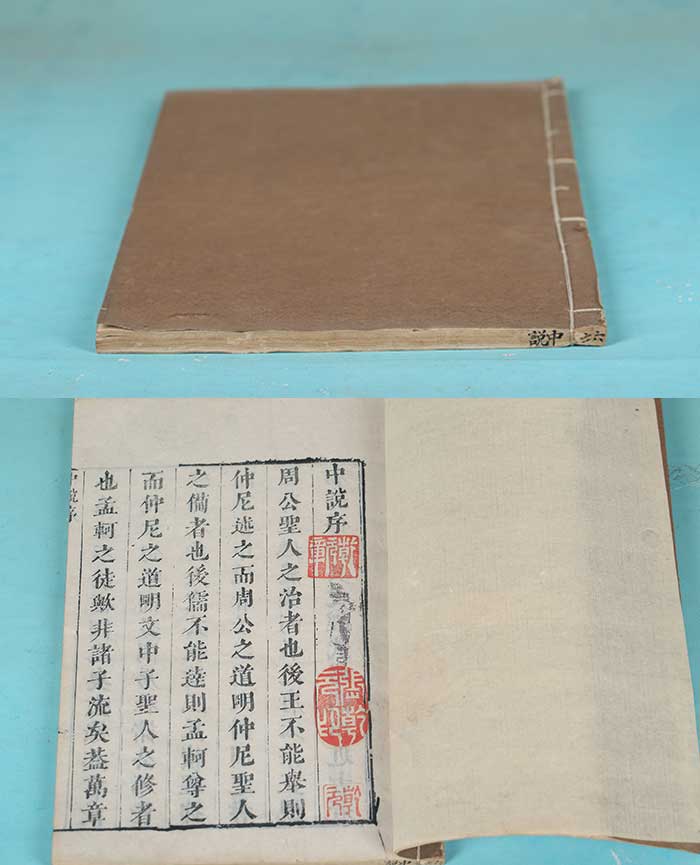 中說
六之
中說序
周公聖人之治者也後王不能舉則
仲尼述之而周公之道明仲尼聖人
之備者也後儒不能達則孟軻尊之
而仲尼之道明文中子聖人之修者
也孟軻之徒歟非諸子流矣葢萬章
中說序